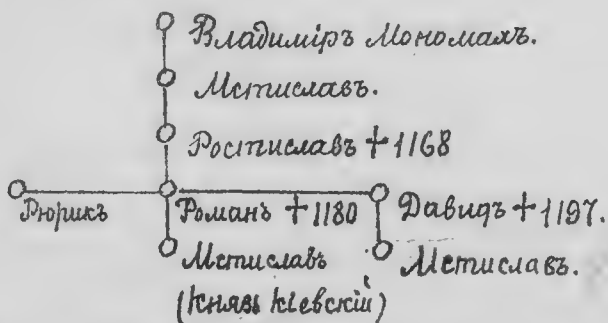 Владиміръ Мономахъ.
Мстиславъ.
Ростиславъ +1168
Рюрикъ
Романъ +1180
Давидъ +1197.
Мстиславъ
(Князь Кіевскій)
Мстиславъ.